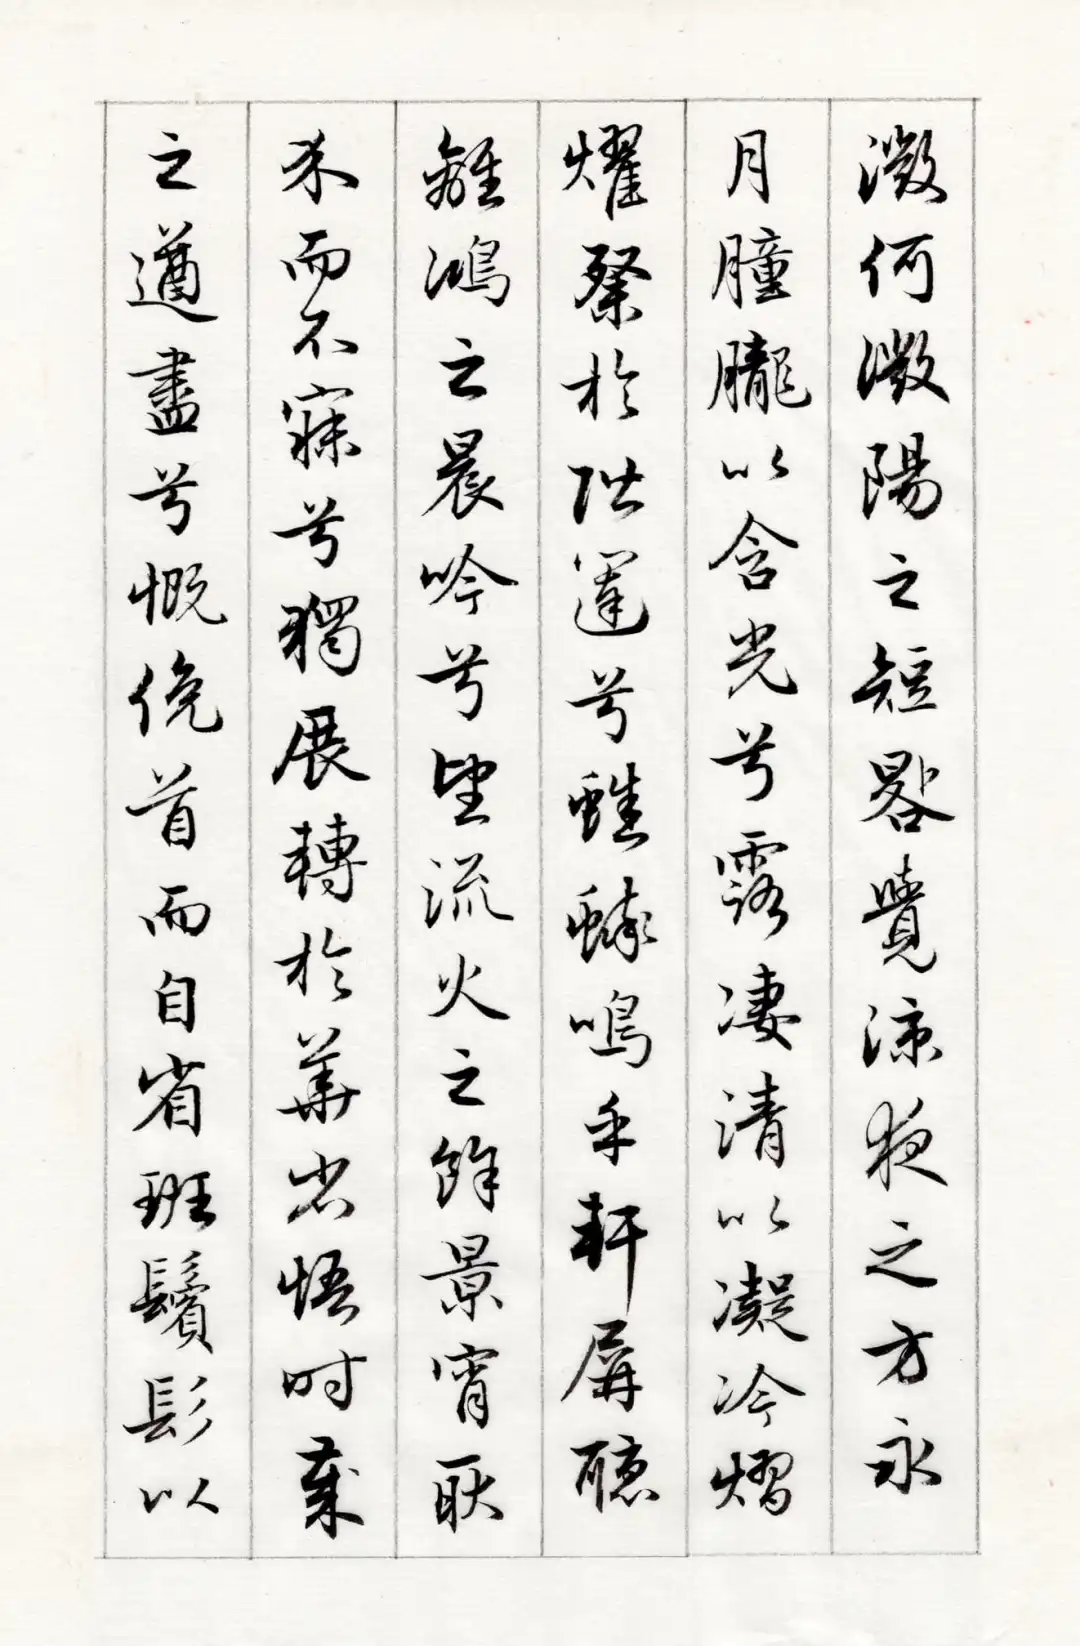 激何微陽之短晷覺涼夜之方永
月朣朧以含光兮露凄清以凝冷熠
燿粲於階闥兮蟋蟀鳴乎軒屏聽
離鴻之晨吟兮望流火之餘景宵耿
介而不寐兮獨展轉於華省悟時歲
之遒盡兮慨俛首而自省班鬢髟以